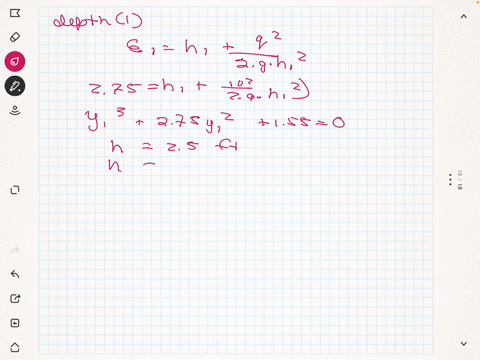 depth (1)
E₁ = h₁ + q² / 2.g.h₁²
2.75 = h₁ + 10² / 2.g.h₁²)
y₁³ + 2.75y₁² + 1.55 = 0
h = 2.5 ft
h =